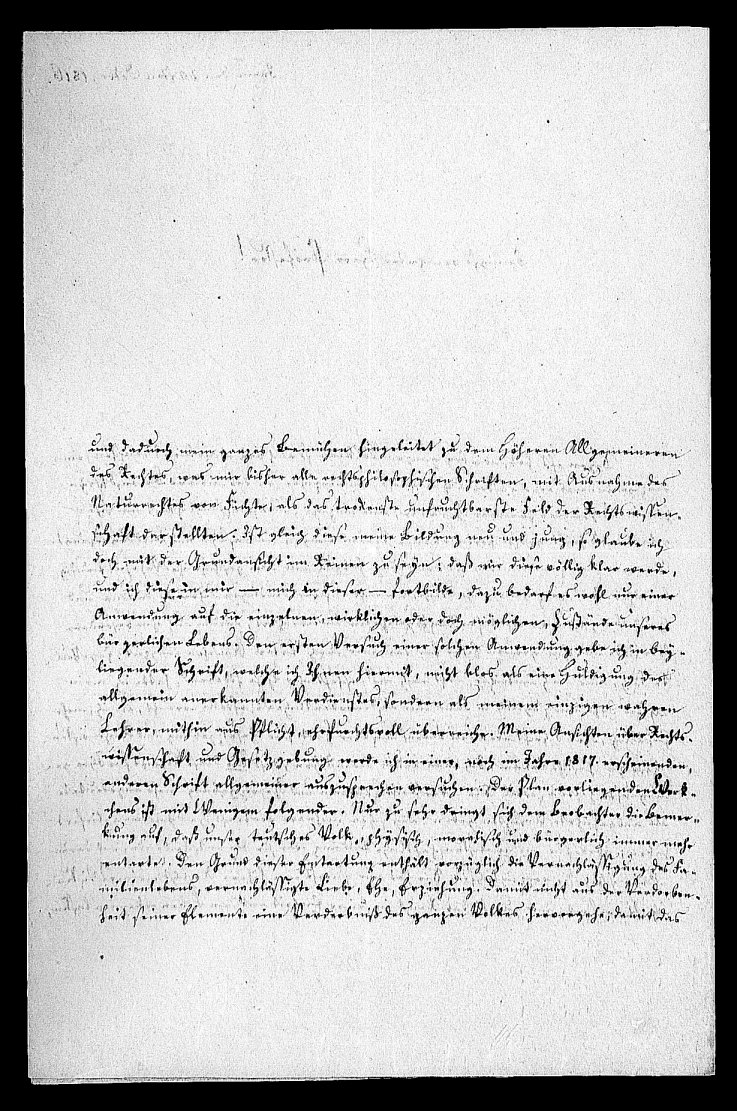 und dadurch mein ganzes Bemühen hingeleitet zu dem Höheren Allgemeineren
des Rechtes, was mir bisher alle rechtsphilosophischen Schriften, mit Ausnahme des
Naturrechtes von Fichte, als das trockenste unfruchtbarste Feld der Rechtswissen-
schaft darstellten. Ist gleich diese meine Bildung neu und jung, so glaube ich
doch mit der Grundansicht im Reinen zu seyn; daß mir diese völlig klar werde,
und ich diese in mir — mich in dieser — fortbilde, dazu bedarf es wohl nur einer
Anwendung auf die einzelnen, wirklichen oder doch möglichen, Zustände unseres
bürgerlichen Lebens. Den ersten Versuch einer solchen Anwendung gebe ich in bey-
liegender Schrift, welche ich Ihnen hiermit, nicht blos als eine Huldigung des
allgemein anerkannten Verdienstes, sondern als meinem einzigen wahren
Lehrer, mithin aus Pflicht, ehrfurchtsvoll überreiche. Meine Ansichten über Rechts-
wissenschaft und Gesetzgebung werde ich in einer, noch im Jahre 1817. erscheinenden,
anderen Schrift allgemeiner auszusprechen versuchen. Der Plan vorliegenden Werk-
chens ist mit Wenigem folgender. Nur zu sehr dringt sich dem Beobachter die Bemer-
kung auf, daß unser teutsches Volk, physisch, moralisch und bürgerlich immer mehr
entartet. Den Grund dieser Entartung enthält vorzüglich die Vernachlässigung des Fa-
milienlebens, vernachlässigte Liebe, Ehe, Erziehung. Damit nicht aus der Verdorben-
heit seiner Elemente eine Verderbniß des ganzen Volkes hervorgehe; damit das